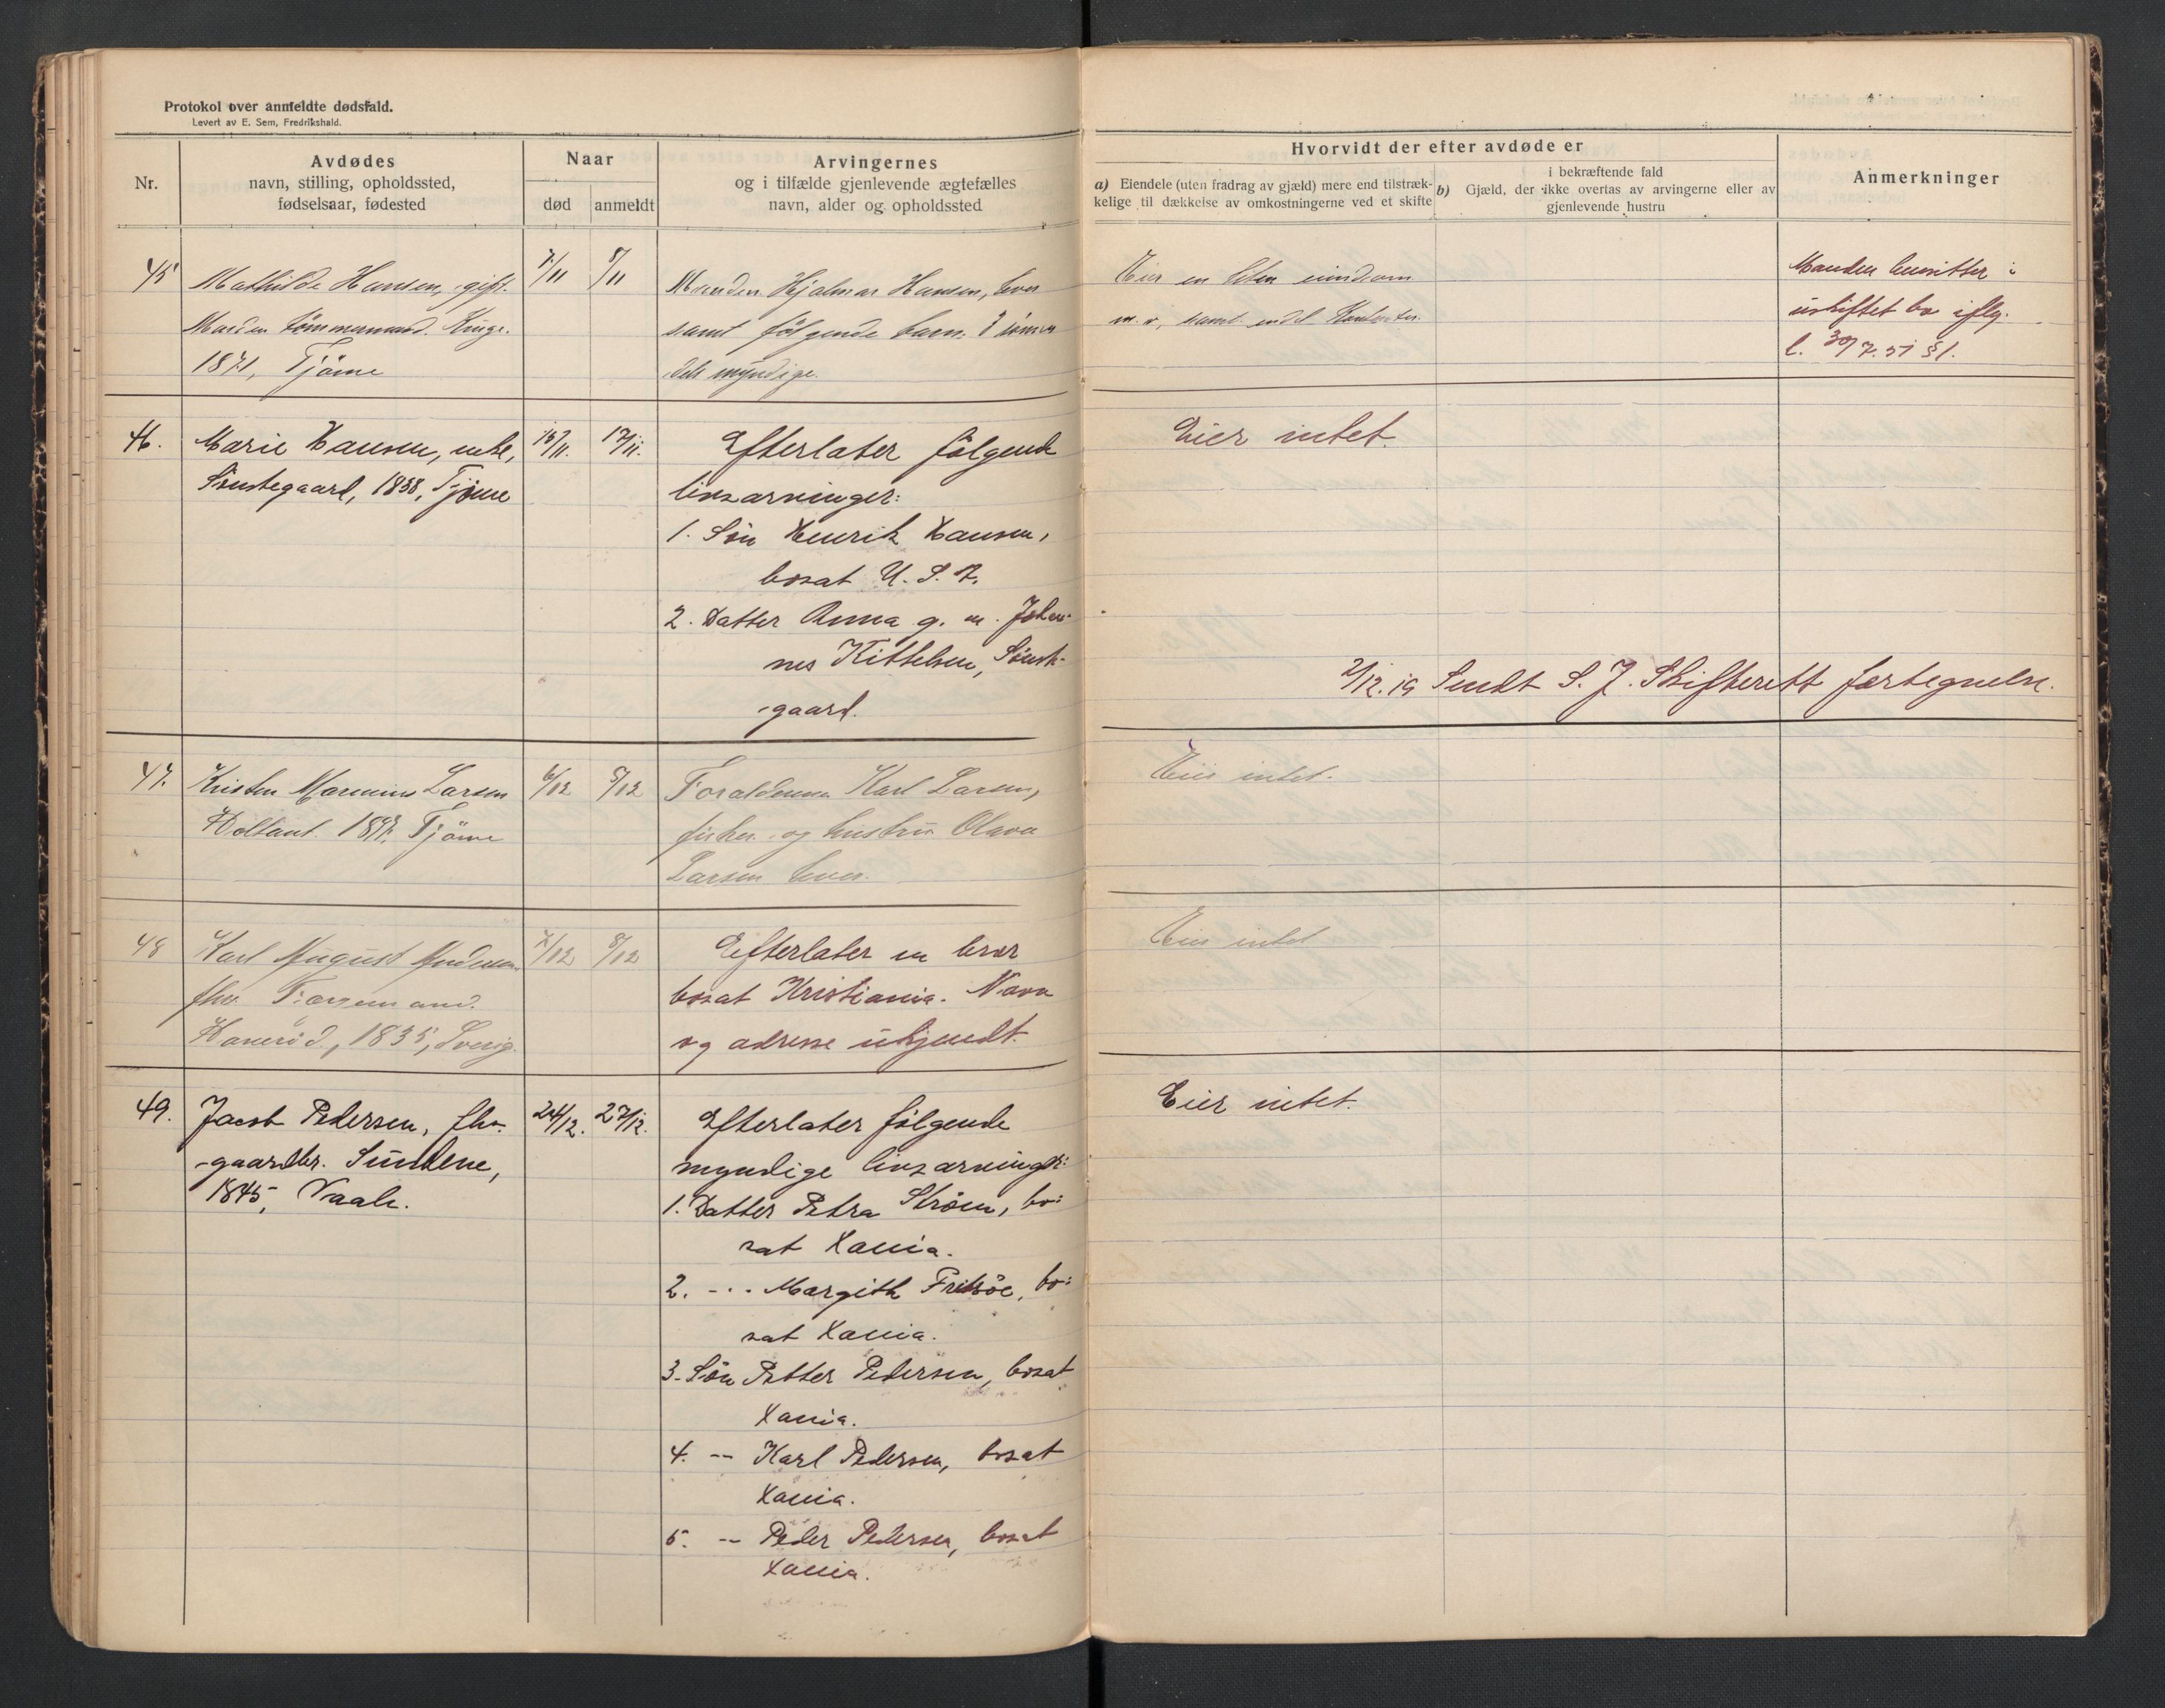 Protokol over anmeldte dødsfald.
Levert av E. Sem, Fredrikshald.
Nr.
Avdødes
navn, stilling, opholdssted,
fødselsaar, fødested
Naar
død
anmeldt
Arvingernes
og i tilfælde gjenlevende ægtefælles
navn, alder og opholdssted
Hvorvidt der efter avdøde er
a) Eiendele (uten fradrag av gjæld) mere end tilstræk-
kelige til dækkelse av omkostningerne ved et skifte
i bekræftende fald
b) Gjæld, der ikke overtas av arvingerne eller av
gjenlevende hustru
Anmerkninger
45
Mathilde Hansen, gift.
Manden tømmermand.
1871, Tjøme
7/11
8/11
Manden Hjalmar Hansen, lever
samt følgende barn:
dels myndige.
Eier en liten eiendom
m. v., samt endel
Manden hensitter i
uskiftet bo iflg.
l. 30/7. 51 § 1.
46.
Marie Hansen, enke,
Sønstegaard, 1838, Tjøme
15/11.
17/11.
Efterlater følgende
livsarvinger:
1. Søn Henrik Hansen,
bosat U. S. A.
2. Datter Anna g. m. Johan-
nes Kittelsen, Sønste-
-gaard.
Eier intet.
2/12. 19 Sendt S. J. Skifterett fortegnelse.
47.
Kristen Larsen
Holtane. 1897. Tjöme
6/12
8/12
Forældrene Karl Larsen,
fisker og hustru Olava
Larsen lever.
Eier intet.
48
Karl August Andersen
fhv.
1835, Sverig
7/12
8/12
Efterlater en bror
bosat Kristiania. Navn
og adresse ukjendt.
Eier intet
49.
Jacob Pedersen, fhv.
-gaardbr. Sundene,
1845, Vaale.
24/12.
27/12.
Efterlater følgende
myndige livsarvinger:
1. Datter Petra Strøm, bo-
sat Xania.
2. - .. - Margith Fritzöe, bo-
sat Xania.
3. Søn Petter Pedersen, bosat
Xania.
4. -- Karl Pedersen, bosat
Xania.
5. -- Peder Pedersen, bosat
Xania.
Eier intet.